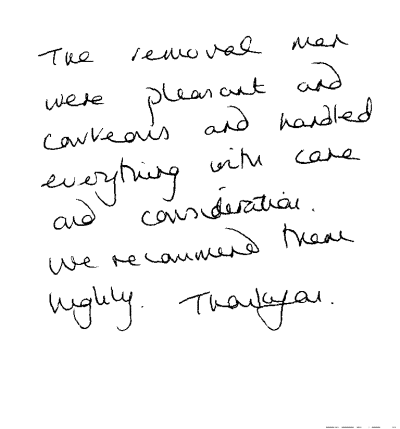 The removal men
were pleasant and
courteous and handled
everything with care
and consideration.
We recommend them
highly. Thankyou.